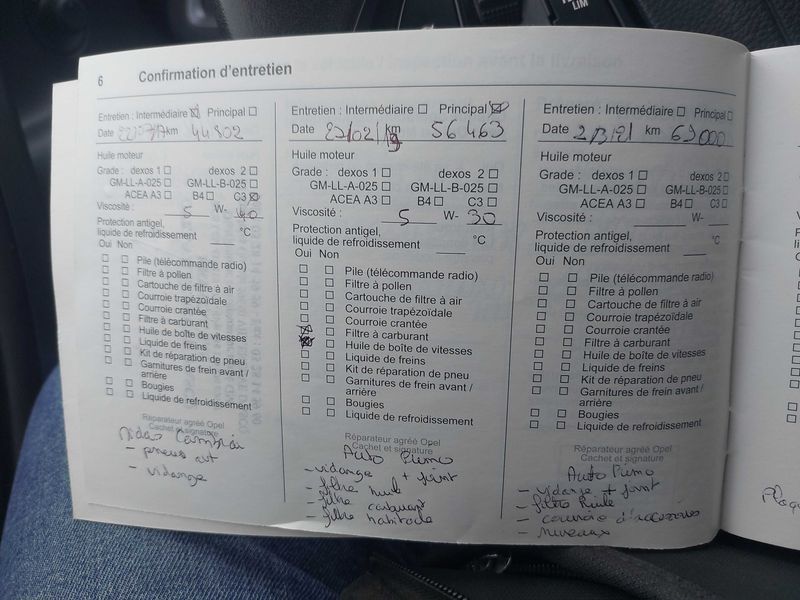 6 Confirmation d'entretien
Entretien : Intermédiaire Principal
Date km 44802
Huile moteur
Grade : dexos 1 dexos 2
GM-LL-A-025 GM-LL-B-025
ACEA A3 B4 C3
Viscosité : 5 W- 40
Protection antigel,
liquide de refroidissement °C
Oui Non
Pile (télécommande radio)
Filtre à pollen
Cartouche de filtre à air
Courroie trapézoïdale
Courroie crantée
Filtre à carburant
Huile de boîte de vitesses
Liquide de freins
Kit de réparation de pneu
Garnitures de frein avant /
arrière
Bougies
Liquide de refroidissement
Réparateur agréé Opel
Cachet et signature
- pneus
- vidange
Entretien : Intermédiaire Principal
Date 27/02/19 km 56463
Huile moteur
Grade : dexos 1 dexos 2
GM-LL-A-025 GM-LL-B-025
ACEA A3 B4 C3
Viscosité : 5 W- 30
Protection antigel,
liquide de refroidissement °C
Oui Non
Pile (télécommande radio)
Filtre à pollen
Cartouche de filtre à air
Courroie trapézoïdale
Courroie crantée
Filtre à carburant
Huile de boîte de vitesses
Liquide de freins
Kit de réparation de pneu
Garnitures de frein avant /
arrière
Bougies
Liquide de refroidissement
Réparateur agréé Opel
Cachet et signature
Auto Primo
- vidange + joint
- filtre huile
- filtre carburant
- filtre habitacle
Entretien : Intermédiaire Principal
Date 2/3/21 km 69000
Huile moteur
Grade : dexos 1 dexos 2
GM-LL-A-025 GM-LL-B-025
ACEA A3 B4 C3
Viscosité : W-
Protection antigel,
liquide de refroidissement °C
Oui Non
Pile (télécommande radio)
Filtre à pollen
Cartouche de filtre à air
Courroie trapézoïdale
Courroie crantée
Filtre à carburant
Huile de boîte de vitesses
Liquide de freins
Kit de réparation de pneu
Garnitures de frein avant /
arrière
Bougies
Liquide de refroidissement
Réparateur agréé Opel
Cachet et signature
Auto Primo
- vidange + joint
- filtre huile
- courroie d'accessoires
- niveaux
LIM